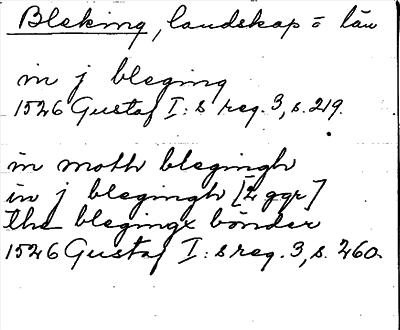 Bleking, landskap = län
in j bleging
1526 Gustaf I:s reg. 3, s. 219.
in moth blegingh
in j blegingh [2 ggr]
the blegingx bönder
1526 Gustaf I:s reg. 3, s. 260.